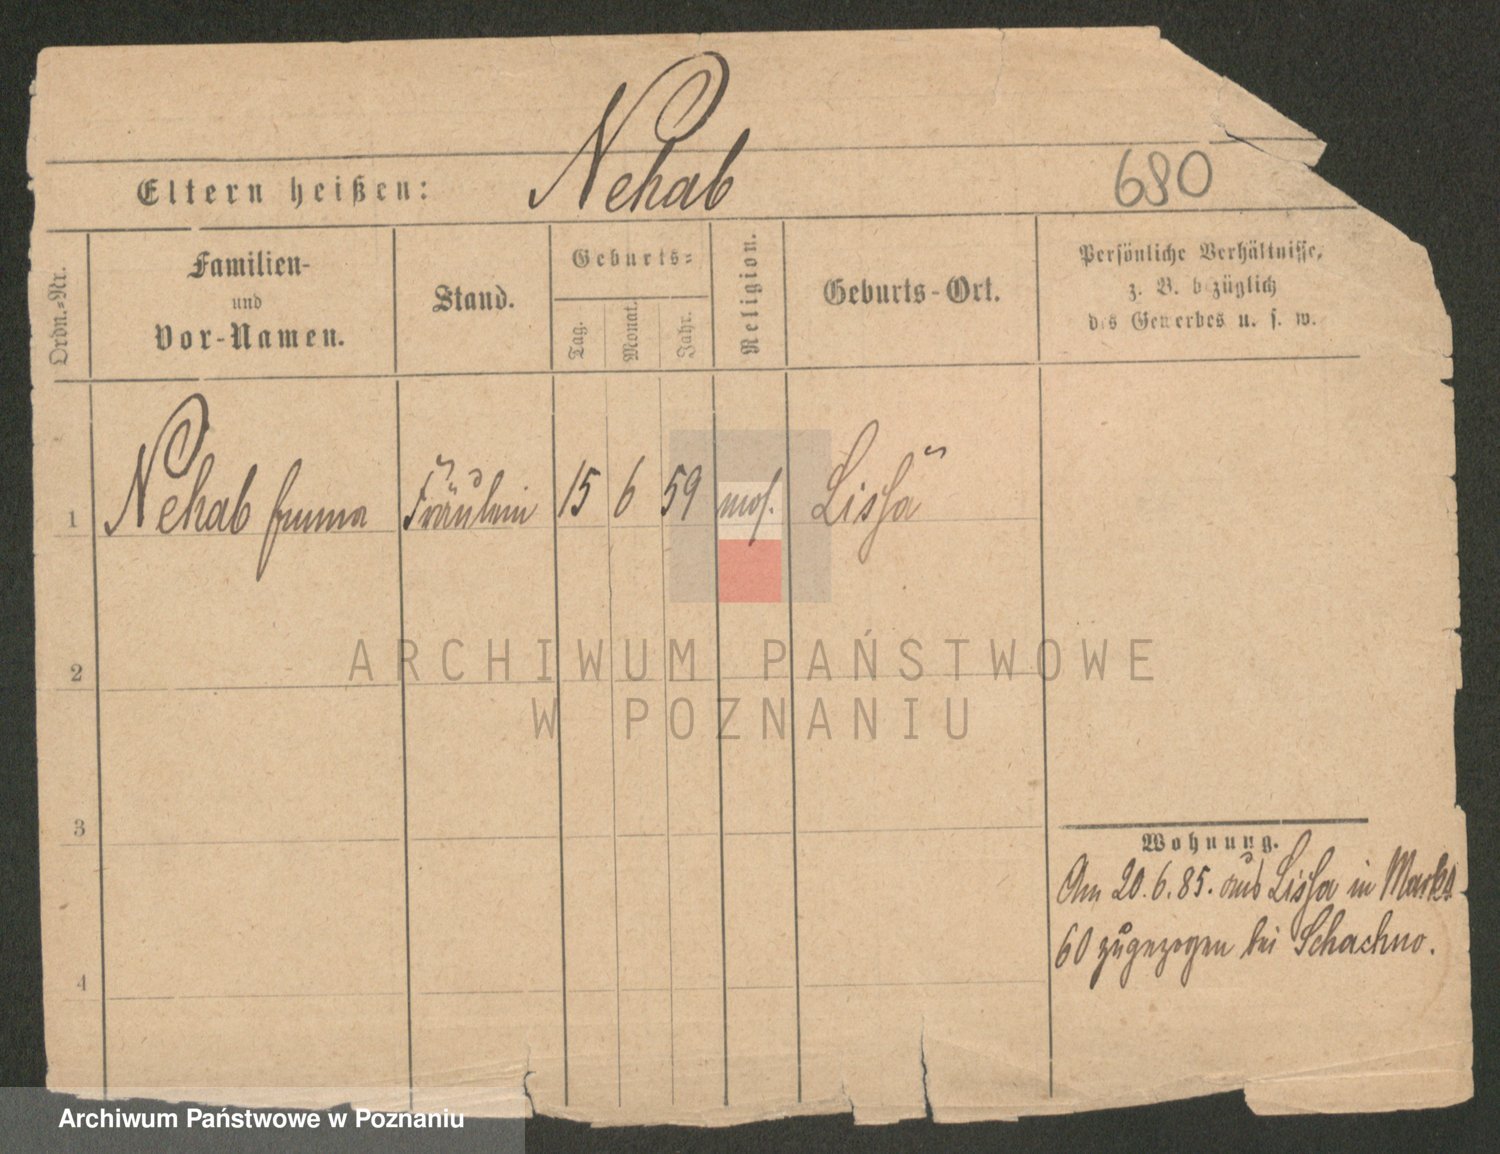 Nehab
Eltern heißen:
680
Ordn.-Nr.
Familien-
und
Vor-Namen.
Stand.
Geburts-
Tag.
Monat.
Jahr.
Religion.
Geburts-Ort.
Persönliche Verhältnisse,
z. B. bezüglich
des Gewerbes u. s. w.
1 Nehab Emma Fräulein 15 6 59 mos. Lissa
2
ARCHIWUM PAŃSTWOWE
W POZNANIU
3
Wohnung.
Am 20.6.85. aus Lissa in Markt
60 zugezogen bei Schachno.
4
Archiwum Państwowe w Poznaniu